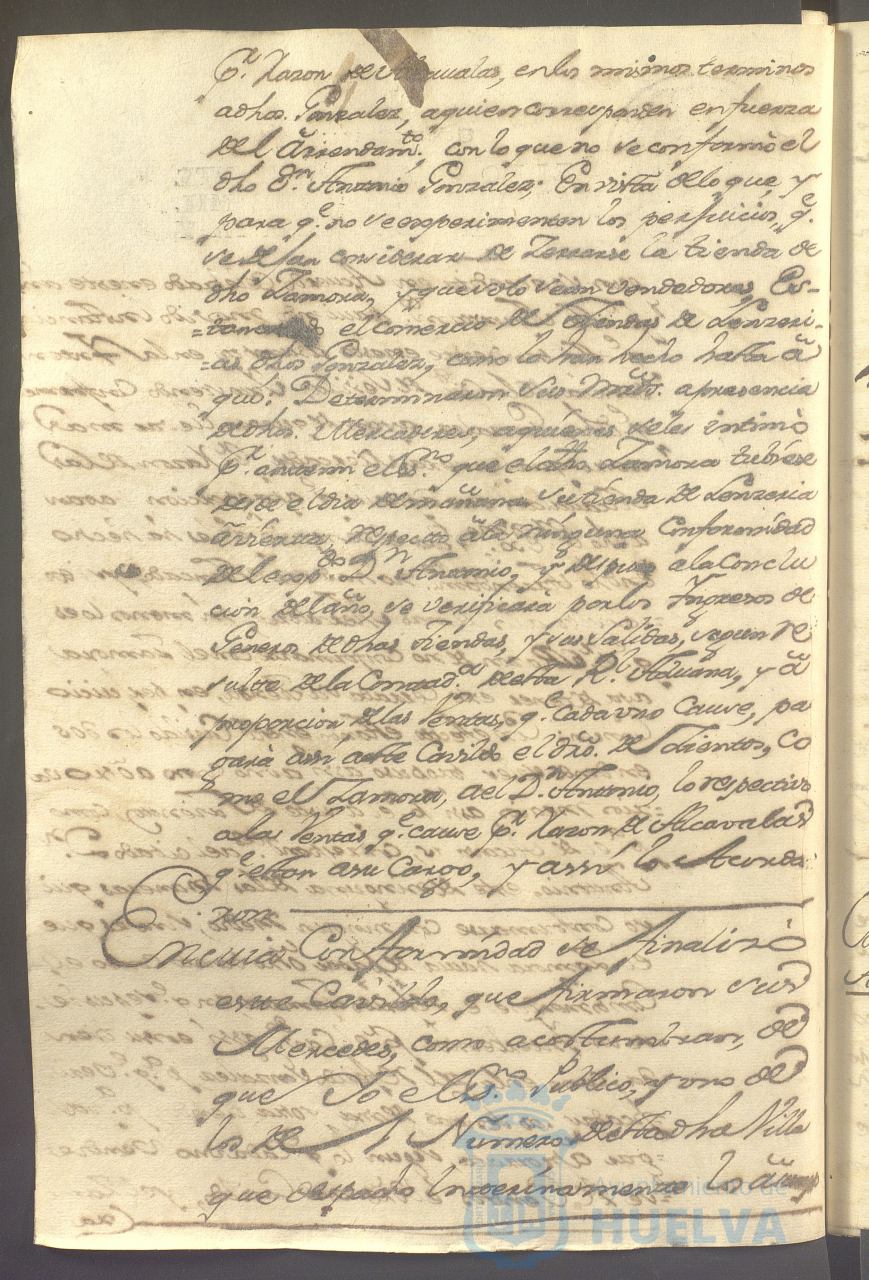 pr. Razon de Alcavalas, en los mismos terminos
a dhos. Gonzalez, a quien corresponden en fuerza
del Arrendamto. con lo que no se conformò el
dho Dn. Antonio Gonzalez; En vista de lo que, y
para qe. no se experimenten los perjuicios, qe.
se dejan considerar de Zerrarse la tienda de
dho Zamora, y que solo sean vendedores, Es-
=tancando el comercio de tiendas de Lenzeri-
=as dhos Gonzalez, como lo han hecho hasta a
qui: Determinaron Sus Mrds. a presencia
de dhos. Mercaderes, a quienes se les intimò
pr. ante mi el Esno. que el dho Zamora tubiese
desde el dia de mañana su tienda de Lenzeria
avierta, respecto à la ninguna Conformidad
del expdo. Dn. Antonio, y despues à la Conclu
cion del año, se verificarà por los Yngresos de
Generos de dhas tiendas, y sus Salidas, segun re
sulte de la Contadª. de esta Rl. Aduana, y à
proporcion de las Ventas, qe. cada uno Cause, pa
garà assi a este Cavildo el dro. de Vientos, co
mo el Zamora, a el Dn. Antonio, lo respectivo
a las Ventas qe. cause pr. Razon de Alcavalas
qe. estan a su Cargo, y assi lo Acorda:
ron
En cuia Conformidad se finalizò
este Cavildo, que firmaron sus
Mercedes, como acostumbran, de
que Yo el Esno. Publico, y uno de
los del Numero de esta dha Villa
que despacho Interinamente los
Ayuntamiento de
HUELVA